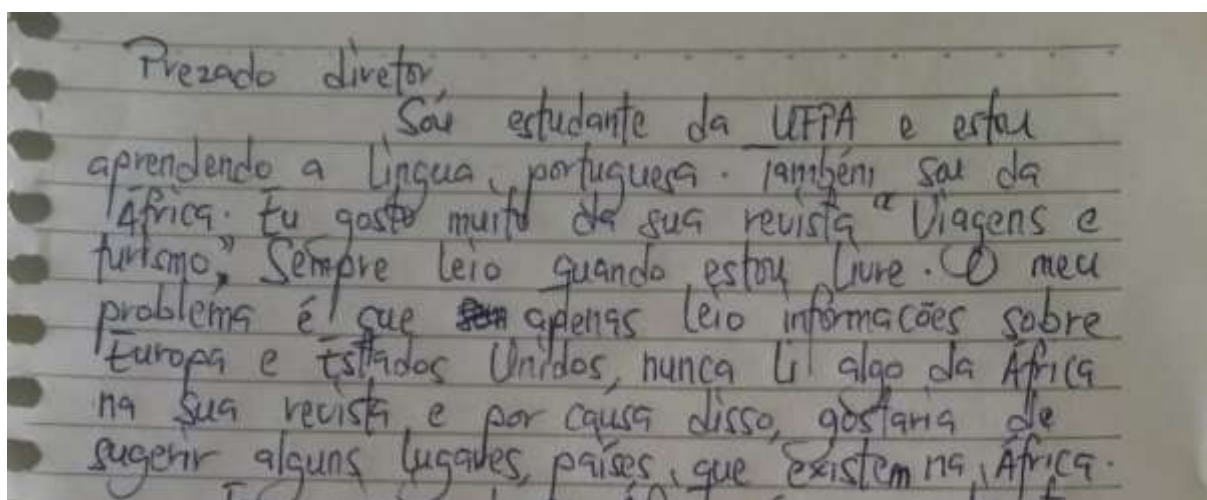 Prezado diretor,
Sou estudante da UFPA e estou
aprendendo a língua portuguesa. Também sou da
África. Eu gosto muito da sua revista "Viagens e
turismo", Sempre leio quando estou livre. O meu
problema é que apenas leio informações sobre
Europa e Estados Unidos, nunca li algo da África
na sua revista e por causa disso, gostaria de
sugerir alguns lugares, países, que existem na África.